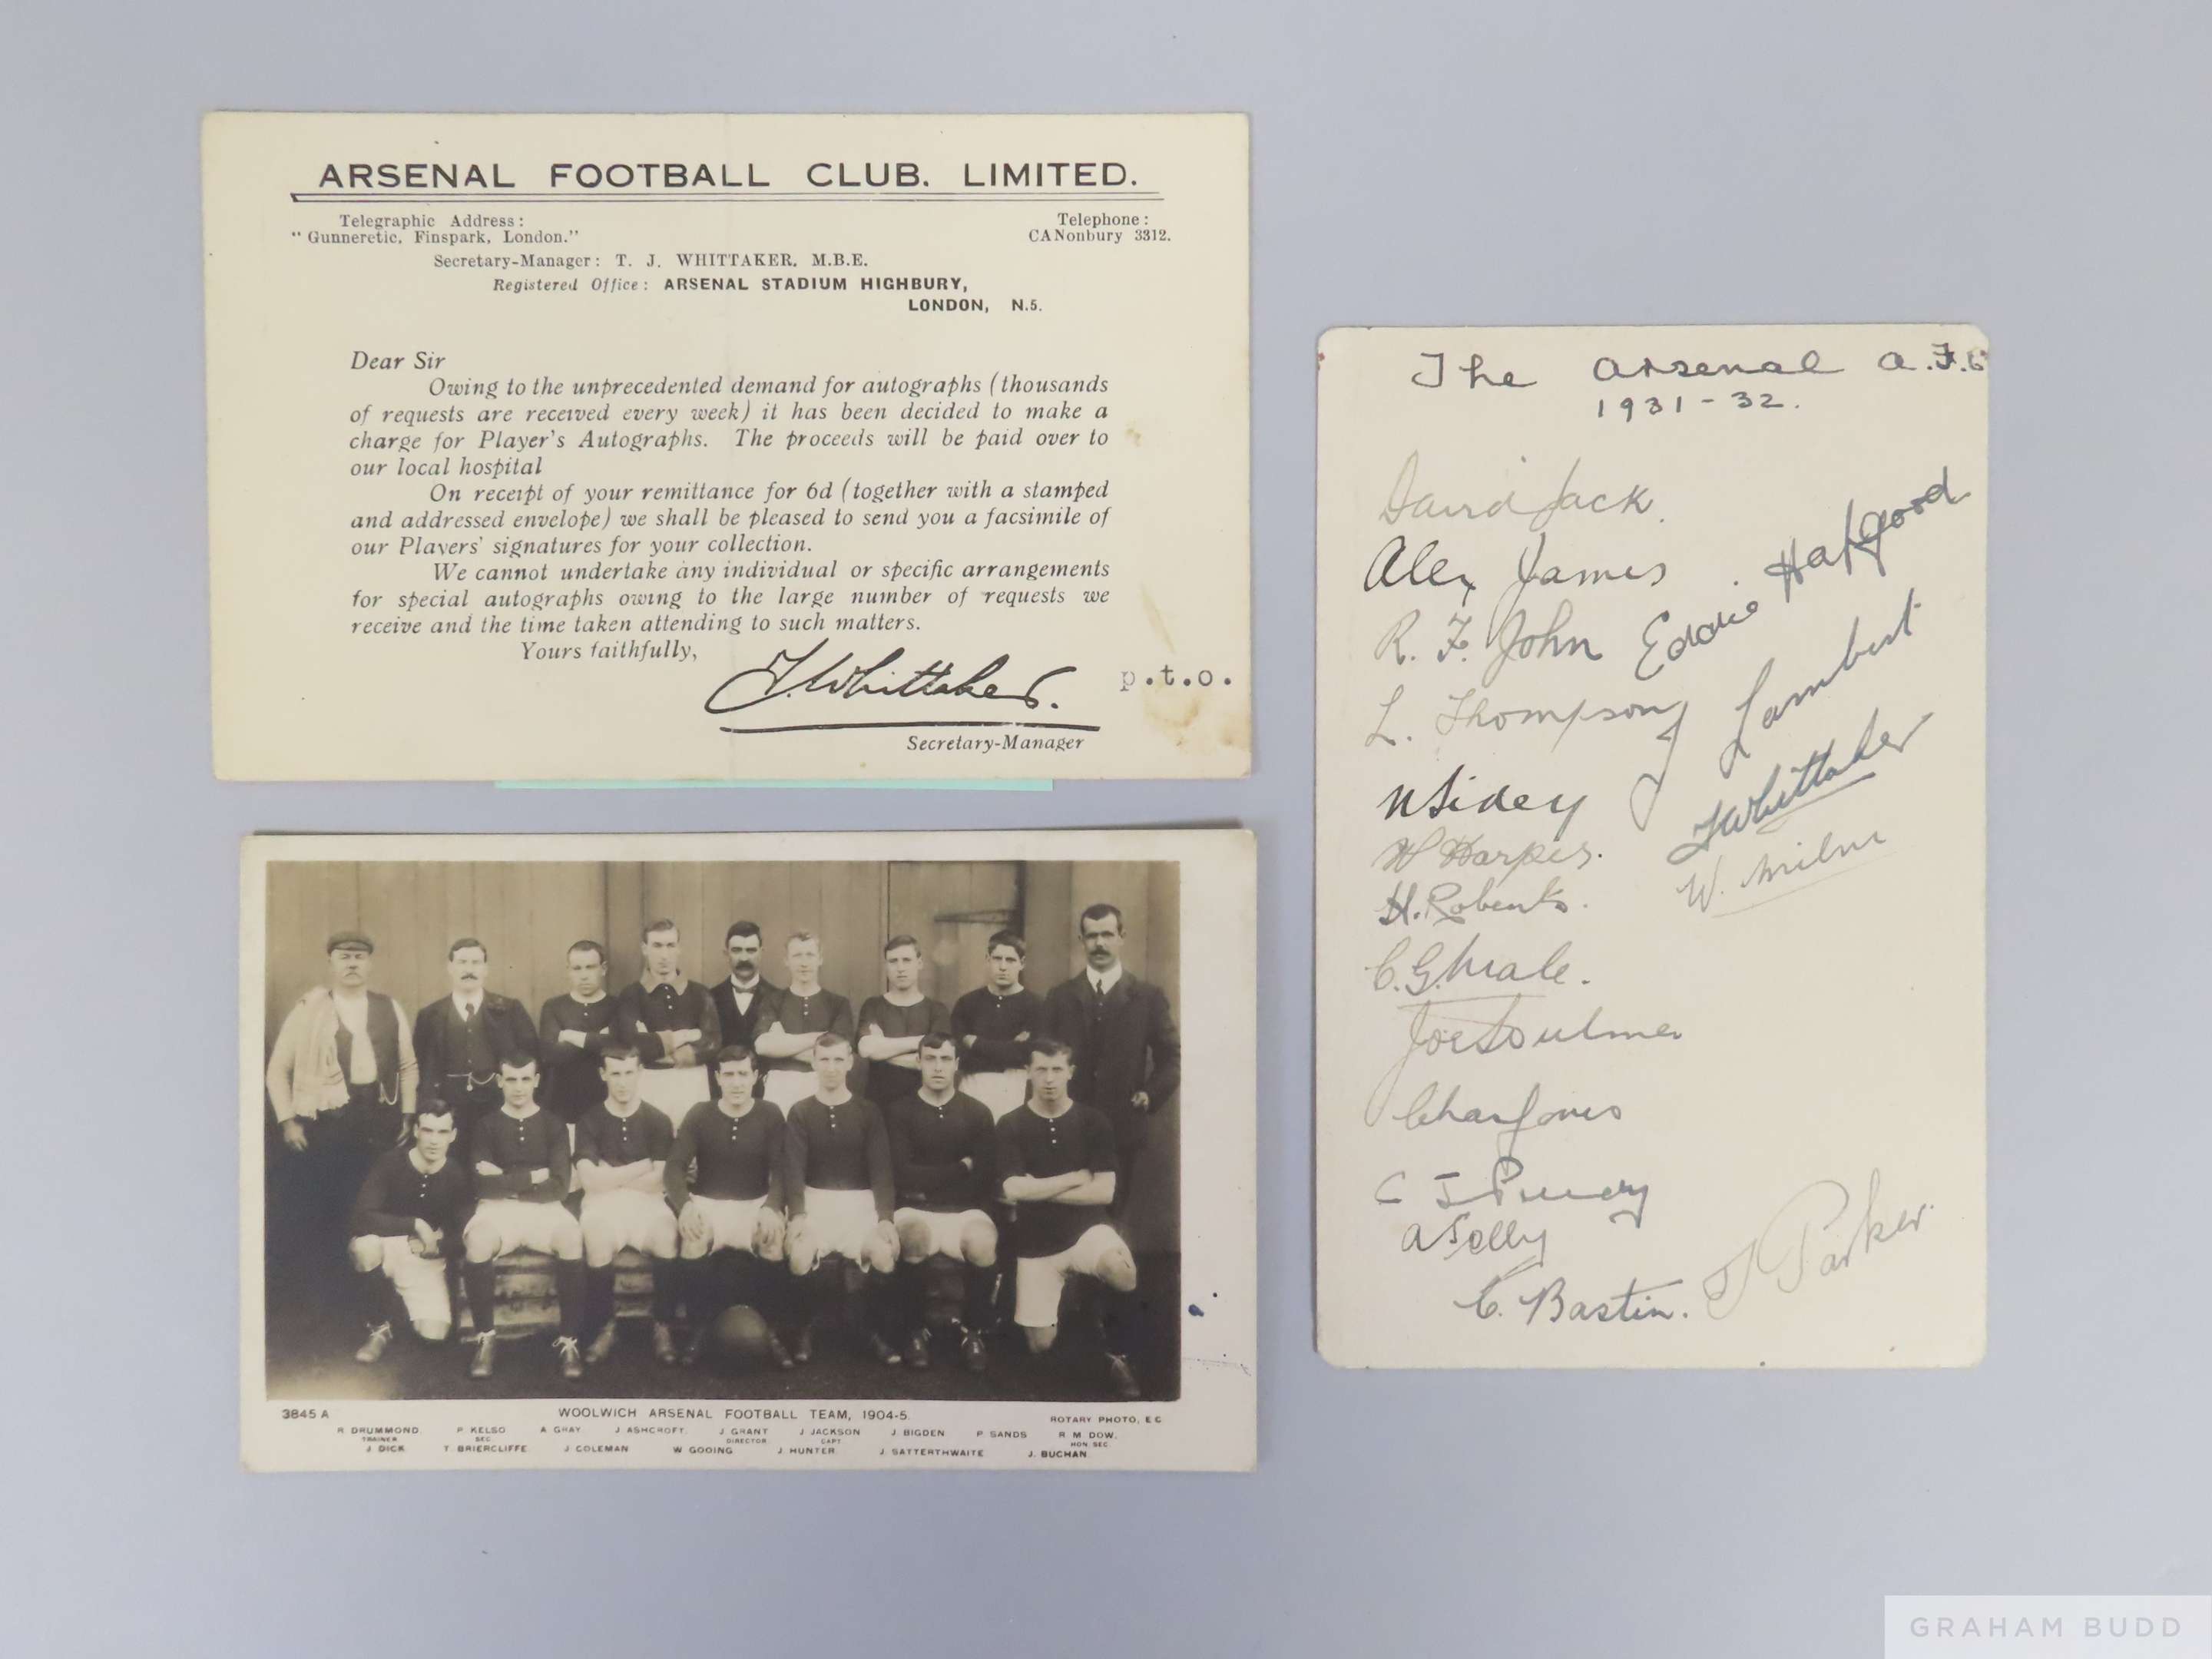 ARSENAL FOOTBALL CLUB. LIMITED.
Telegraphic Address:
"Gunneretic, Finspark, London."
Telephone:
CANonbury 3312.
Secretary-Manager: T. J. WHITTAKER, M.B.E.
Registered Office: ARSENAL STADIUM HIGHBURY,
LONDON, N.5.
Dear Sir
Owing to the unprecedented demand for autographs (thousands
of requests are received every week) it has been decided to make a
charge for Player's Autographs. The proceeds will be paid over to
our local hospital
On receipt of your remittance for 6d (together with a stamped
and addressed envelope) we shall be pleased to send you a facsimile of
our Players' signatures for your collection.
We cannot undertake any individual or specific arrangements
for special autographs owing to the large number of requests we
receive and the time taken attending to such matters.
Yours faithfully,
T. Whittaker.
p.t.o.
Secretary-Manager
3845 A
WOOLWICH ARSENAL FOOTBALL TEAM, 1904-5.
ROTARY PHOTO, E.C.
R DRUMMOND. P KELSO A GRAY J ASHCROFT. J GRANT J JACKSON J. BIGDEN P SANDS R M DOW.
TRAINER SEC DIRECTOR CAPT HON SEC
J. DICK T. BRIERCLIFFE J COLEMAN W GOOING J. HUNTER. J. SATTERTHWAITE J. BUCHAN
The Arsenal A.F.C
1931-32.
David Jack.
Alex James
Eddie Hapgood
R. F. John
J Lambert
L. Thompson
T Whittaker
N Sidey
W. Milne
W Harper.
H. Roberts.
Joe Hulme
Chas Jones
C J Preedy
A Selly
C. Bastin.
T Parker
GRAHAM BUDD